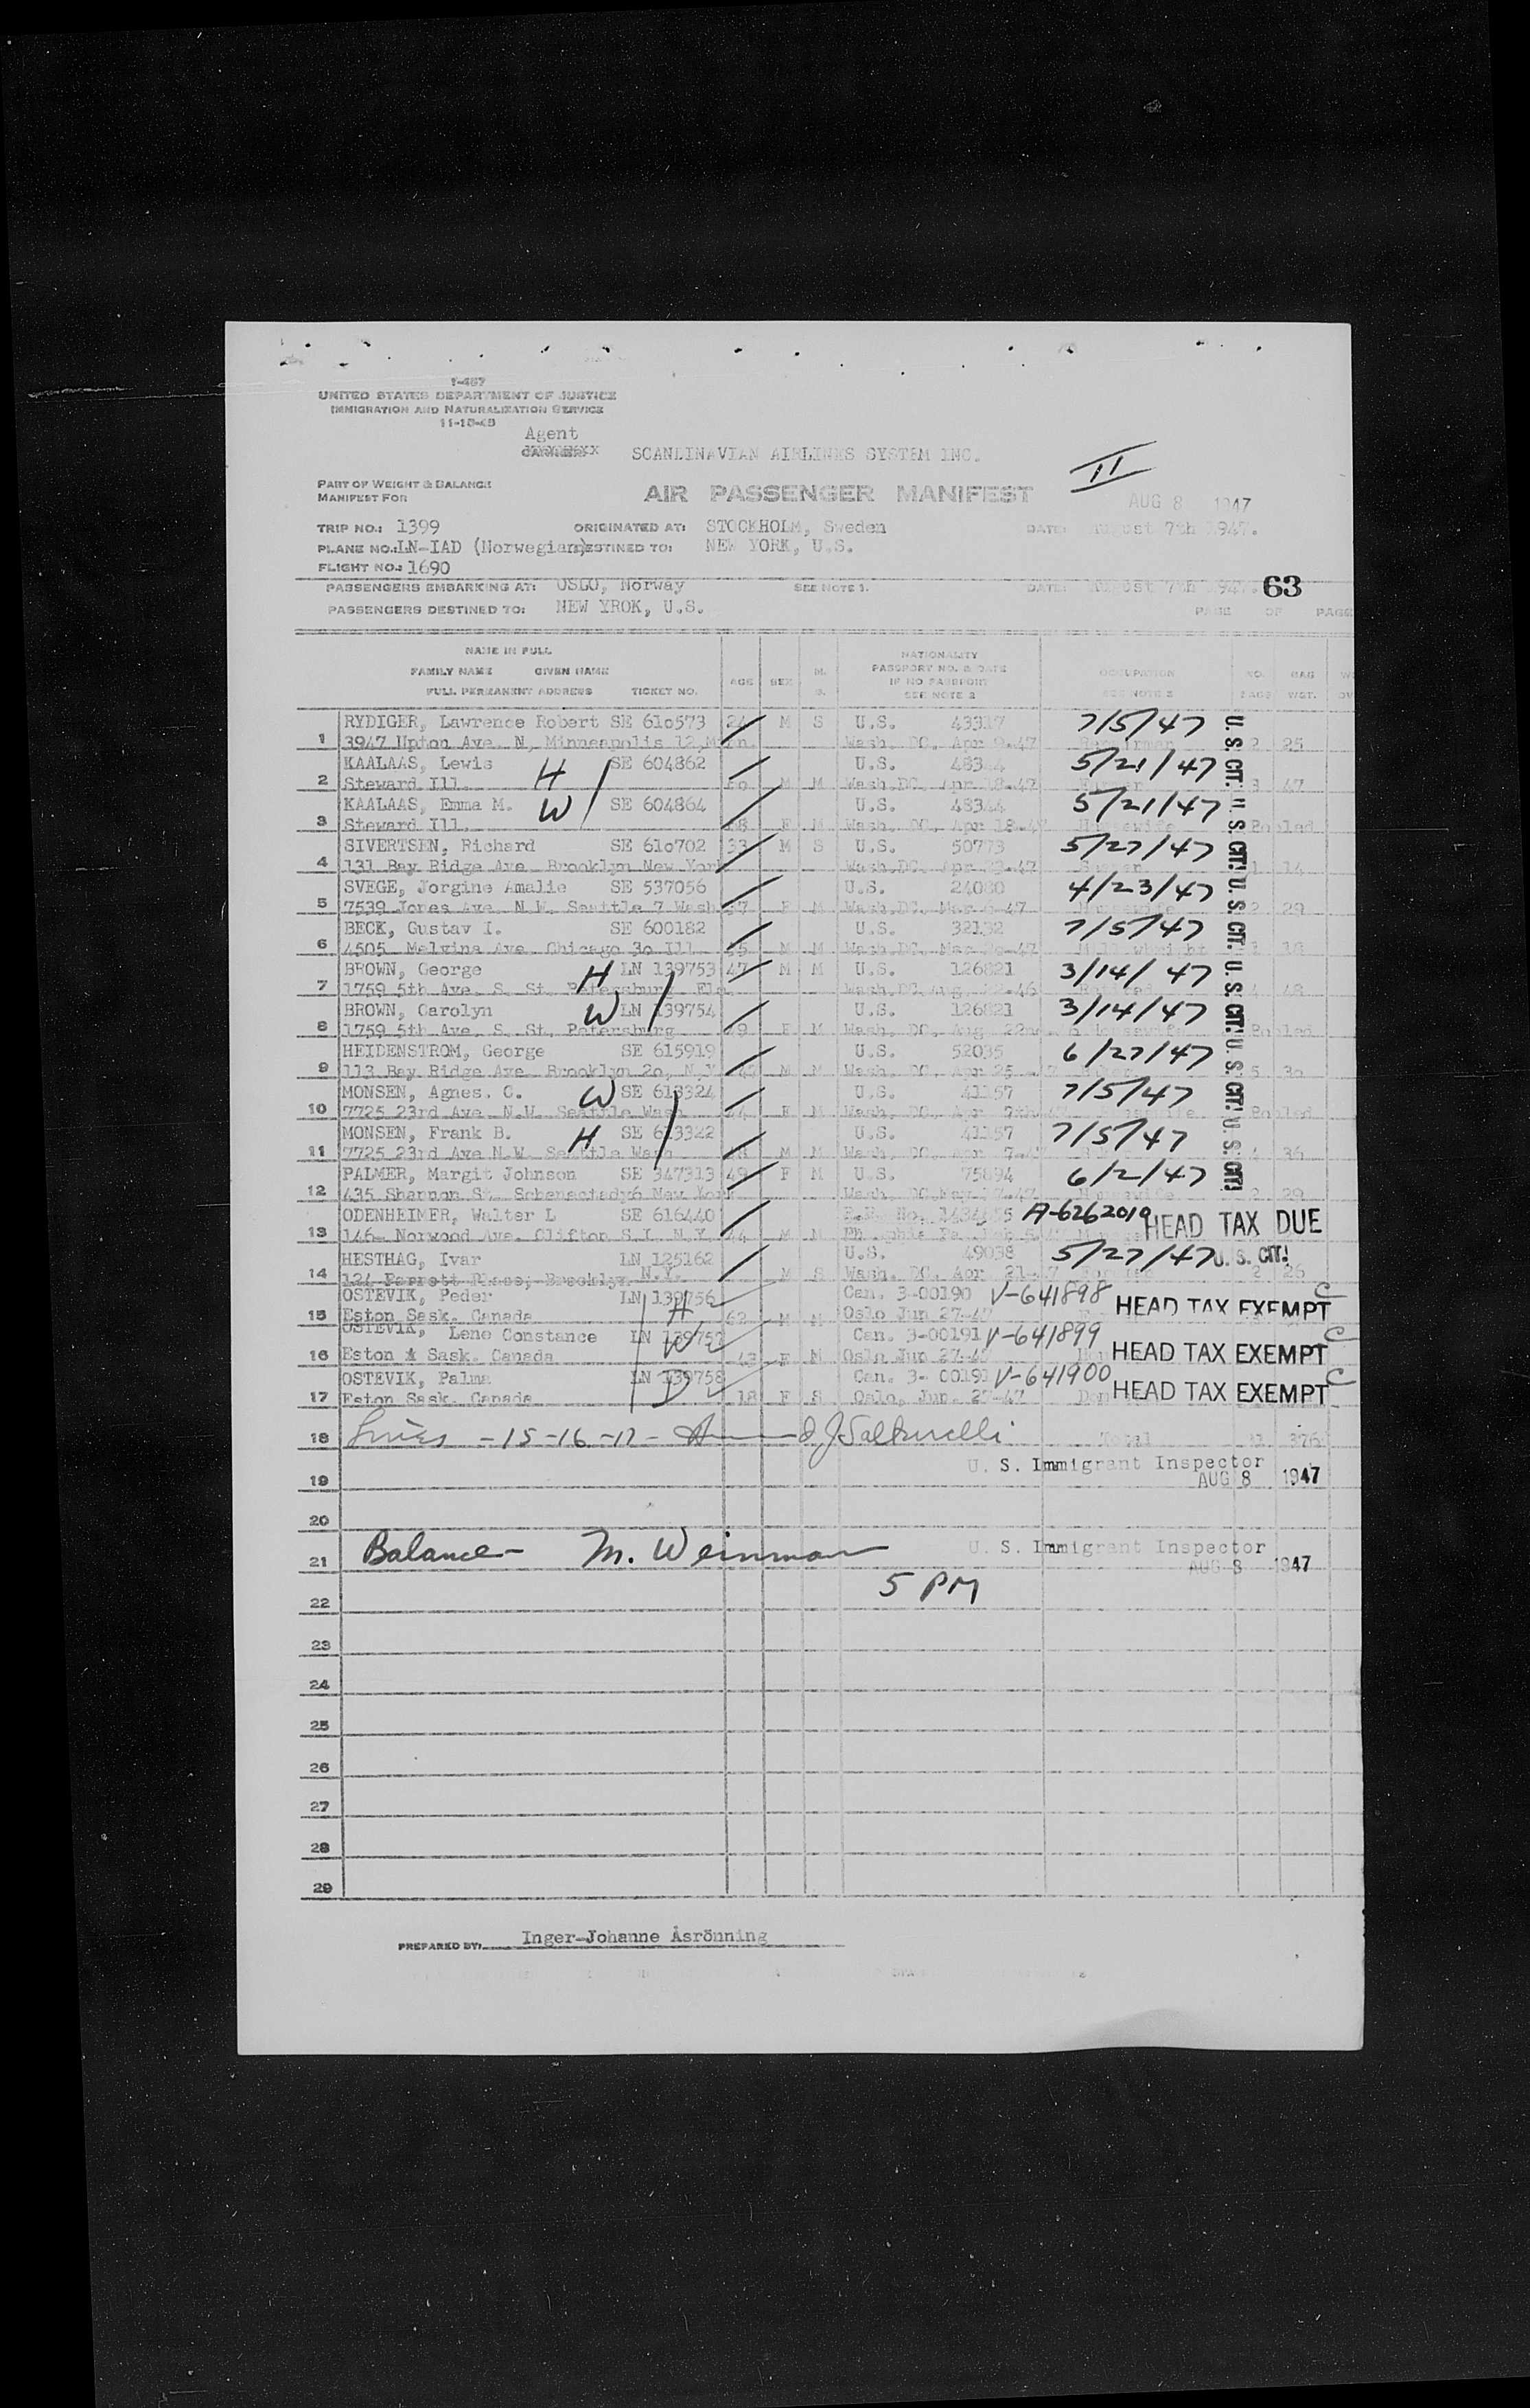 I-467
UNITED STATES DEPARTMENT OF JUSTICE
IMMIGRATION AND NATURALIZATION SERVICE
11-18-45
Agent
SCANDINAVIAN AIRLINES SYSTEM INC.
II
PART OF WEIGHT & BALANCE
MANIFEST FOR
AIR PASSENGER MANIFEST
AUG 8 1947
TRIP NO.: 1399 ORIGINATED AT: STOCKHOLM, Sweden DATE: August 7th 1947.
PLANE NO.: LN-IAD (Norwegian) DESTINED TO: NEW YORK, U.S.
FLIGHT NO.: 1690
PASSENGERS EMBARKING AT: OSLO, Norway SEE NOTE 1. DATE: August 7th 1947. 63
PASSENGERS DESTINED TO: NEW YROK, U.S. PAGE OF PAGE
NAME IN FULL
FAMILY NAME GIVEN NAME
FULL PERMANENT ADDRESS TICKET NO. AGE SEX M. S. NATIONALITY PASSPORT NO. & DATE IF NO PASSPORT SEE NOTE 2 OCCUPATION SEE NOTE 2 NO. BAGS BAG WGT.
RYDIGER, Lawrence Robert SE 610573 24 M S U.S. 43317 7/5/47 U. S. CIT.
1 3947 Upton Ave. N, Minneapolis 12, Minn. Wash. DC, Apr 9-47 2 25
KAALAAS, Lewis H SE 604862 U.S. 48344 5/21/47
2 Steward Ill. M M Wash.DC, Apr 18-47 Farmer 3 47
KAALAAS, Emma M. W SE 604864 U.S. 48344 5/21/47 U. S. CIT!
3 Steward Ill. F M Wash. DC, Apr 18-47 Housewife Pooled
SIVERTSEN, Richard SE 610702 33 M S U.S. 50773 5/27/47
4 131 Bay Ridge Ave. Brooklyn New York Wash.DC, Apr 23-47 1 14
SVEGE, Jorgine Amalie SE 537056 U.S. 24080 4/23/47 U. S. CIT.
5 7539 Jones Ave. N.W. Seattle 7 Wash F M Wash.DC, Mar 47 Housewife 2 29
BECK, Gustav I. SE 600182 U.S. 32132 7/5/47
6 4505 Melvina Ave. Chicago 30 Ill M M Wash.DC, Mar 47 Millwright 18
BROWN, George H LN 139753 47 M M U.S. 126821 3/14/47 U. S. CIT.
7 1759 5th Ave. S. St. Petersburg Fla. Wash.DC, Aug. 22-46 Retired 4 48
BROWN, Carolyn W LN 139754 U.S. 126821 3/14/47
8 1759 5th Ave. S. St. Petersburg 49 F M Wash, DC, Aug 22nd Housewife Pooled
HEIDENSTROM, George SE 615919 U.S. 52035 6/27/47 U. S. CIT!
9 113 Bay Ridge Ave. Brooklyn 20, N.Y M M Wash. DC, Apr 25 47 5 30
MONSEN, Agnes. C. W SE 613324 U.S. 41157 7/5/47
10 7725 23rd Ave. N.W. Seattle Wash F M Wash, DC, Apr 7th Housewife Pooled
MONSEN, Frank B. H SE 613322 U.S. 41157 7/5/47 U. S. CIT!
11 7725 23rd Ave N.W. Seattle Wash M M Wash. DC, Apr 7-47 4 36
PALMER, Margit Johnson SE 347313 49 F M U.S. 75894 6/2/47
12 435 Shannon St. Schenectady 6 New York Wash. DC, May 47 Housewife 2 29
ODENHEIMER, Walter L SE 616440 A-6262010 HEAD TAX DUE
13 146 Norwood Ave. Clifton S.I. N.Y. 44 M M
HESTHAG, Ivar LN 125162 U.S. 49038 5/27/47 U. S. CIT!
14 124 Parrott Place, Brooklyn N.Y. M S Wash. DC. Apr 21-47 2 26
OSTEVIK, Peder LN 139756 H Can. 3-00190 V-641898 C
15 Eston Sask. Canada 62 M M Oslo Jun 27-47 HEAD TAX EXEMPT
OSTEVIK, Lene Constance LN 139757 W Can. 3-00191 V-641899 C
16 Eston & Sask. Canada 43 F M Oslo Jun 27-47 HEAD TAX EXEMPT
OSTEVIK, Palma LN 139758 D Can. 3-00193 V-641900 C
17 Eston Sask. Canada 18 F S Oslo, Jun. 27-47 HEAD TAX EXEMPT
18 Lines -15-16-17- Total 376
19 U. S. Immigrant Inspector
AUG 8 1947
20
21 Balance- M. Weinman U. S. Immigrant Inspector
AUG 8 1947
22 5 PM
23
24
25
26
27
28
29
PREPARED BY: Inger-Johanne Åsrönning